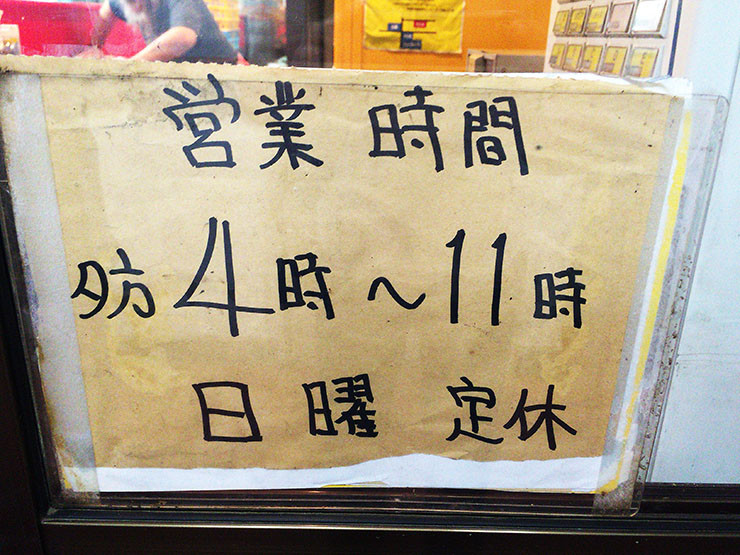 営業時間
夕方4時～11時
日曜定休